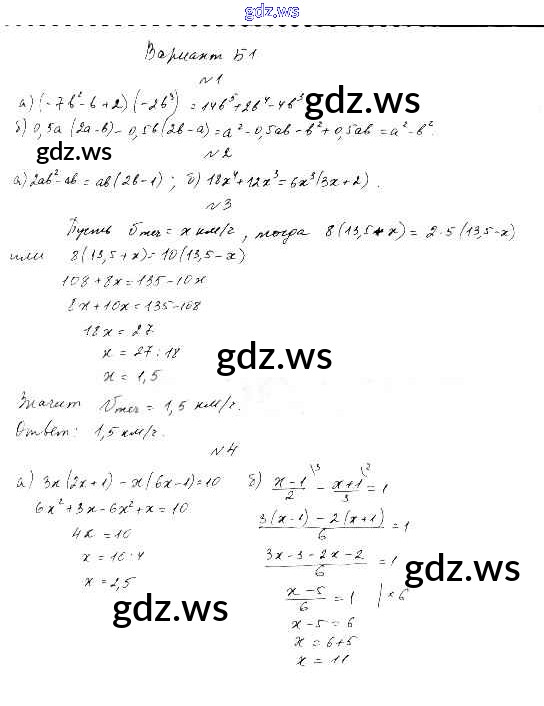 gdz.ws
Вариант Б1
№1
а) (-7b²-b+2)(-2b³) = 14b⁵+2b⁴-4b³ gdz.ws
б) 0,5a(2a-b)-0,5b(2b-a)=a²-0,5ab-b²+0,5ab=a²-b².
gdz.ws №2
а) 2ab²-ab=ab(2b-1); б) 18x⁴+12x³=6x³(3x+2).
№3
Пусть Vтеч=x км/ч, тогда 8(13,5+x)=2·5(13,5-x)
или 8(13,5+x)=10(13,5-x)
108+8x=135-10x
8x+10x=135-108
18x=27
x=27:18 gdz.ws
x=1,5
Значит Vтеч=1,5 км/ч.
Ответ: 1,5 км/ч.
№4
а) 3x(2x+1)-x(6x-1)=10
6x²+3x-6x²+x=10
4x=10
x=10:4
x=2,5
gdz.ws
б) (x-1)/2 \3 - (x+1)/3 \2 = 1
(3(x-1)-2(x+1))/6=1
(3x-3-2x-2)/6=1 gdz.ws
(x-5)/6=1 |×6
x-5=6
x=6+5
x=11
gdz.ws